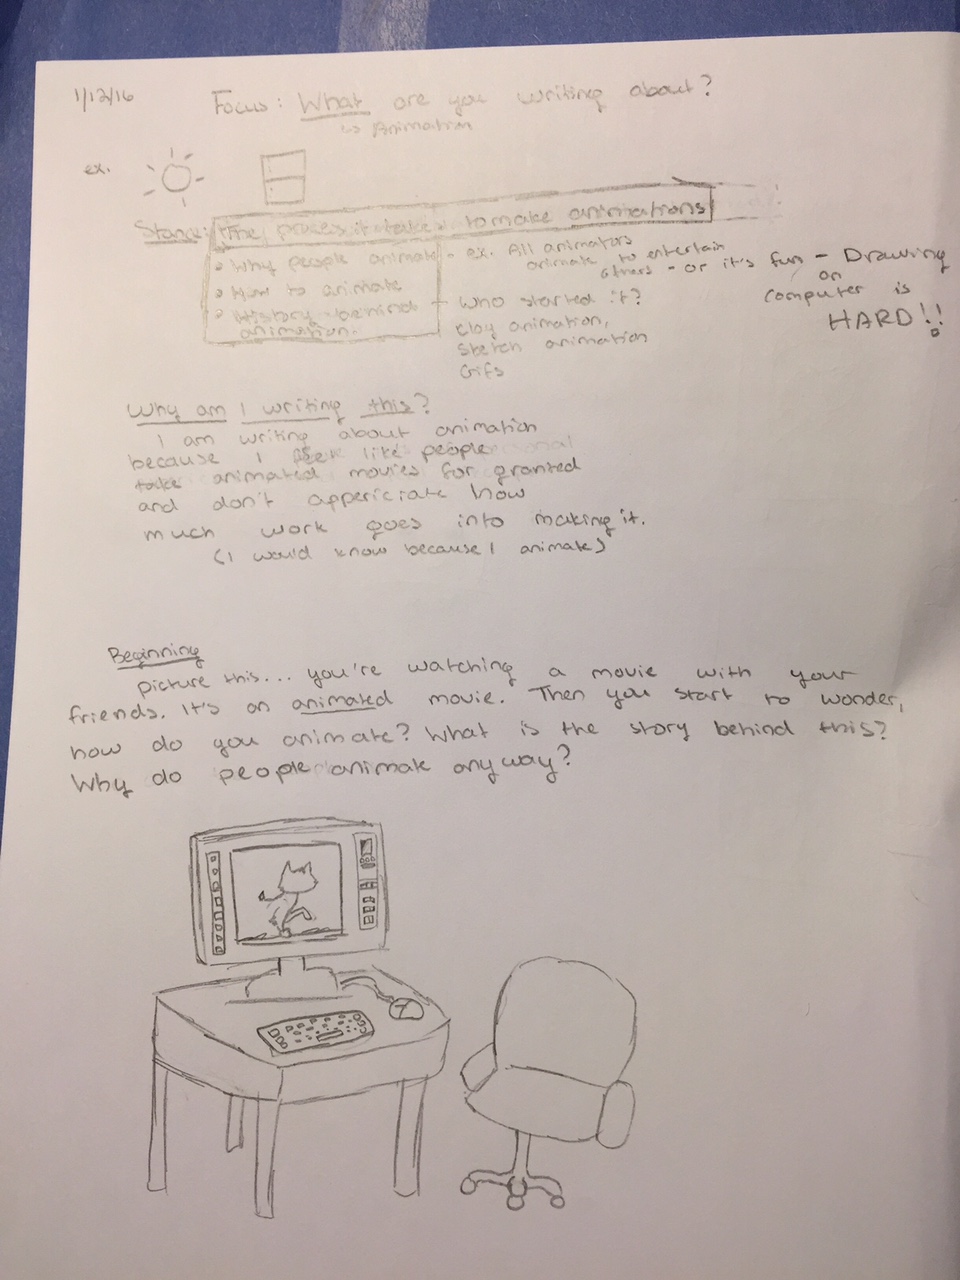 1/12/16
Focus: What are you writing about?
↳ Animation
ex.
Stance: The process it takes to make animations
• Why people animate - ex. All animators
animate to entertain
others - or it's fun - Drawing
on
computer is
HARD!!
• How to animate
• History behind
animation.
- Who started it?
Clay animation,
Sketch animation
Gifs
Why am I writing this?
I am writing about animation
because I feel like people
take animated movies for granted
and don't appericiate how
much work goes into making it.
(I would know because I animate)
Beginning
picture this... you're watching a movie with your
friends. It's an animated movie. Then you start to wonder,
how do you animate? What is the story behind this?
Why do people animate anyway?